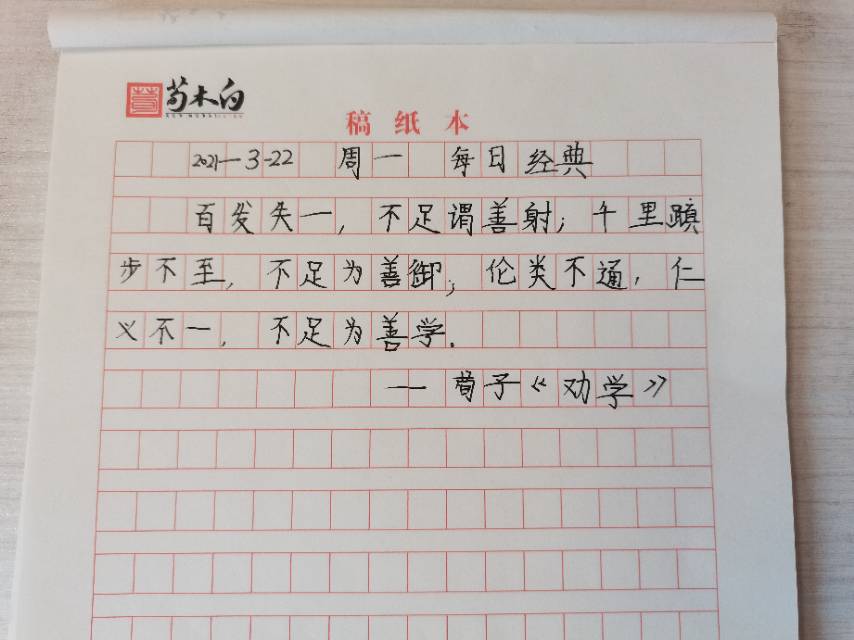 苟木白
稿纸本
2021-3-22 周一 每日经典
百发失一，不足谓善射；千里蹞
步不至，不足为善御；伦类不通，仁
义不一，不足为善学.
— 荀子《劝学》